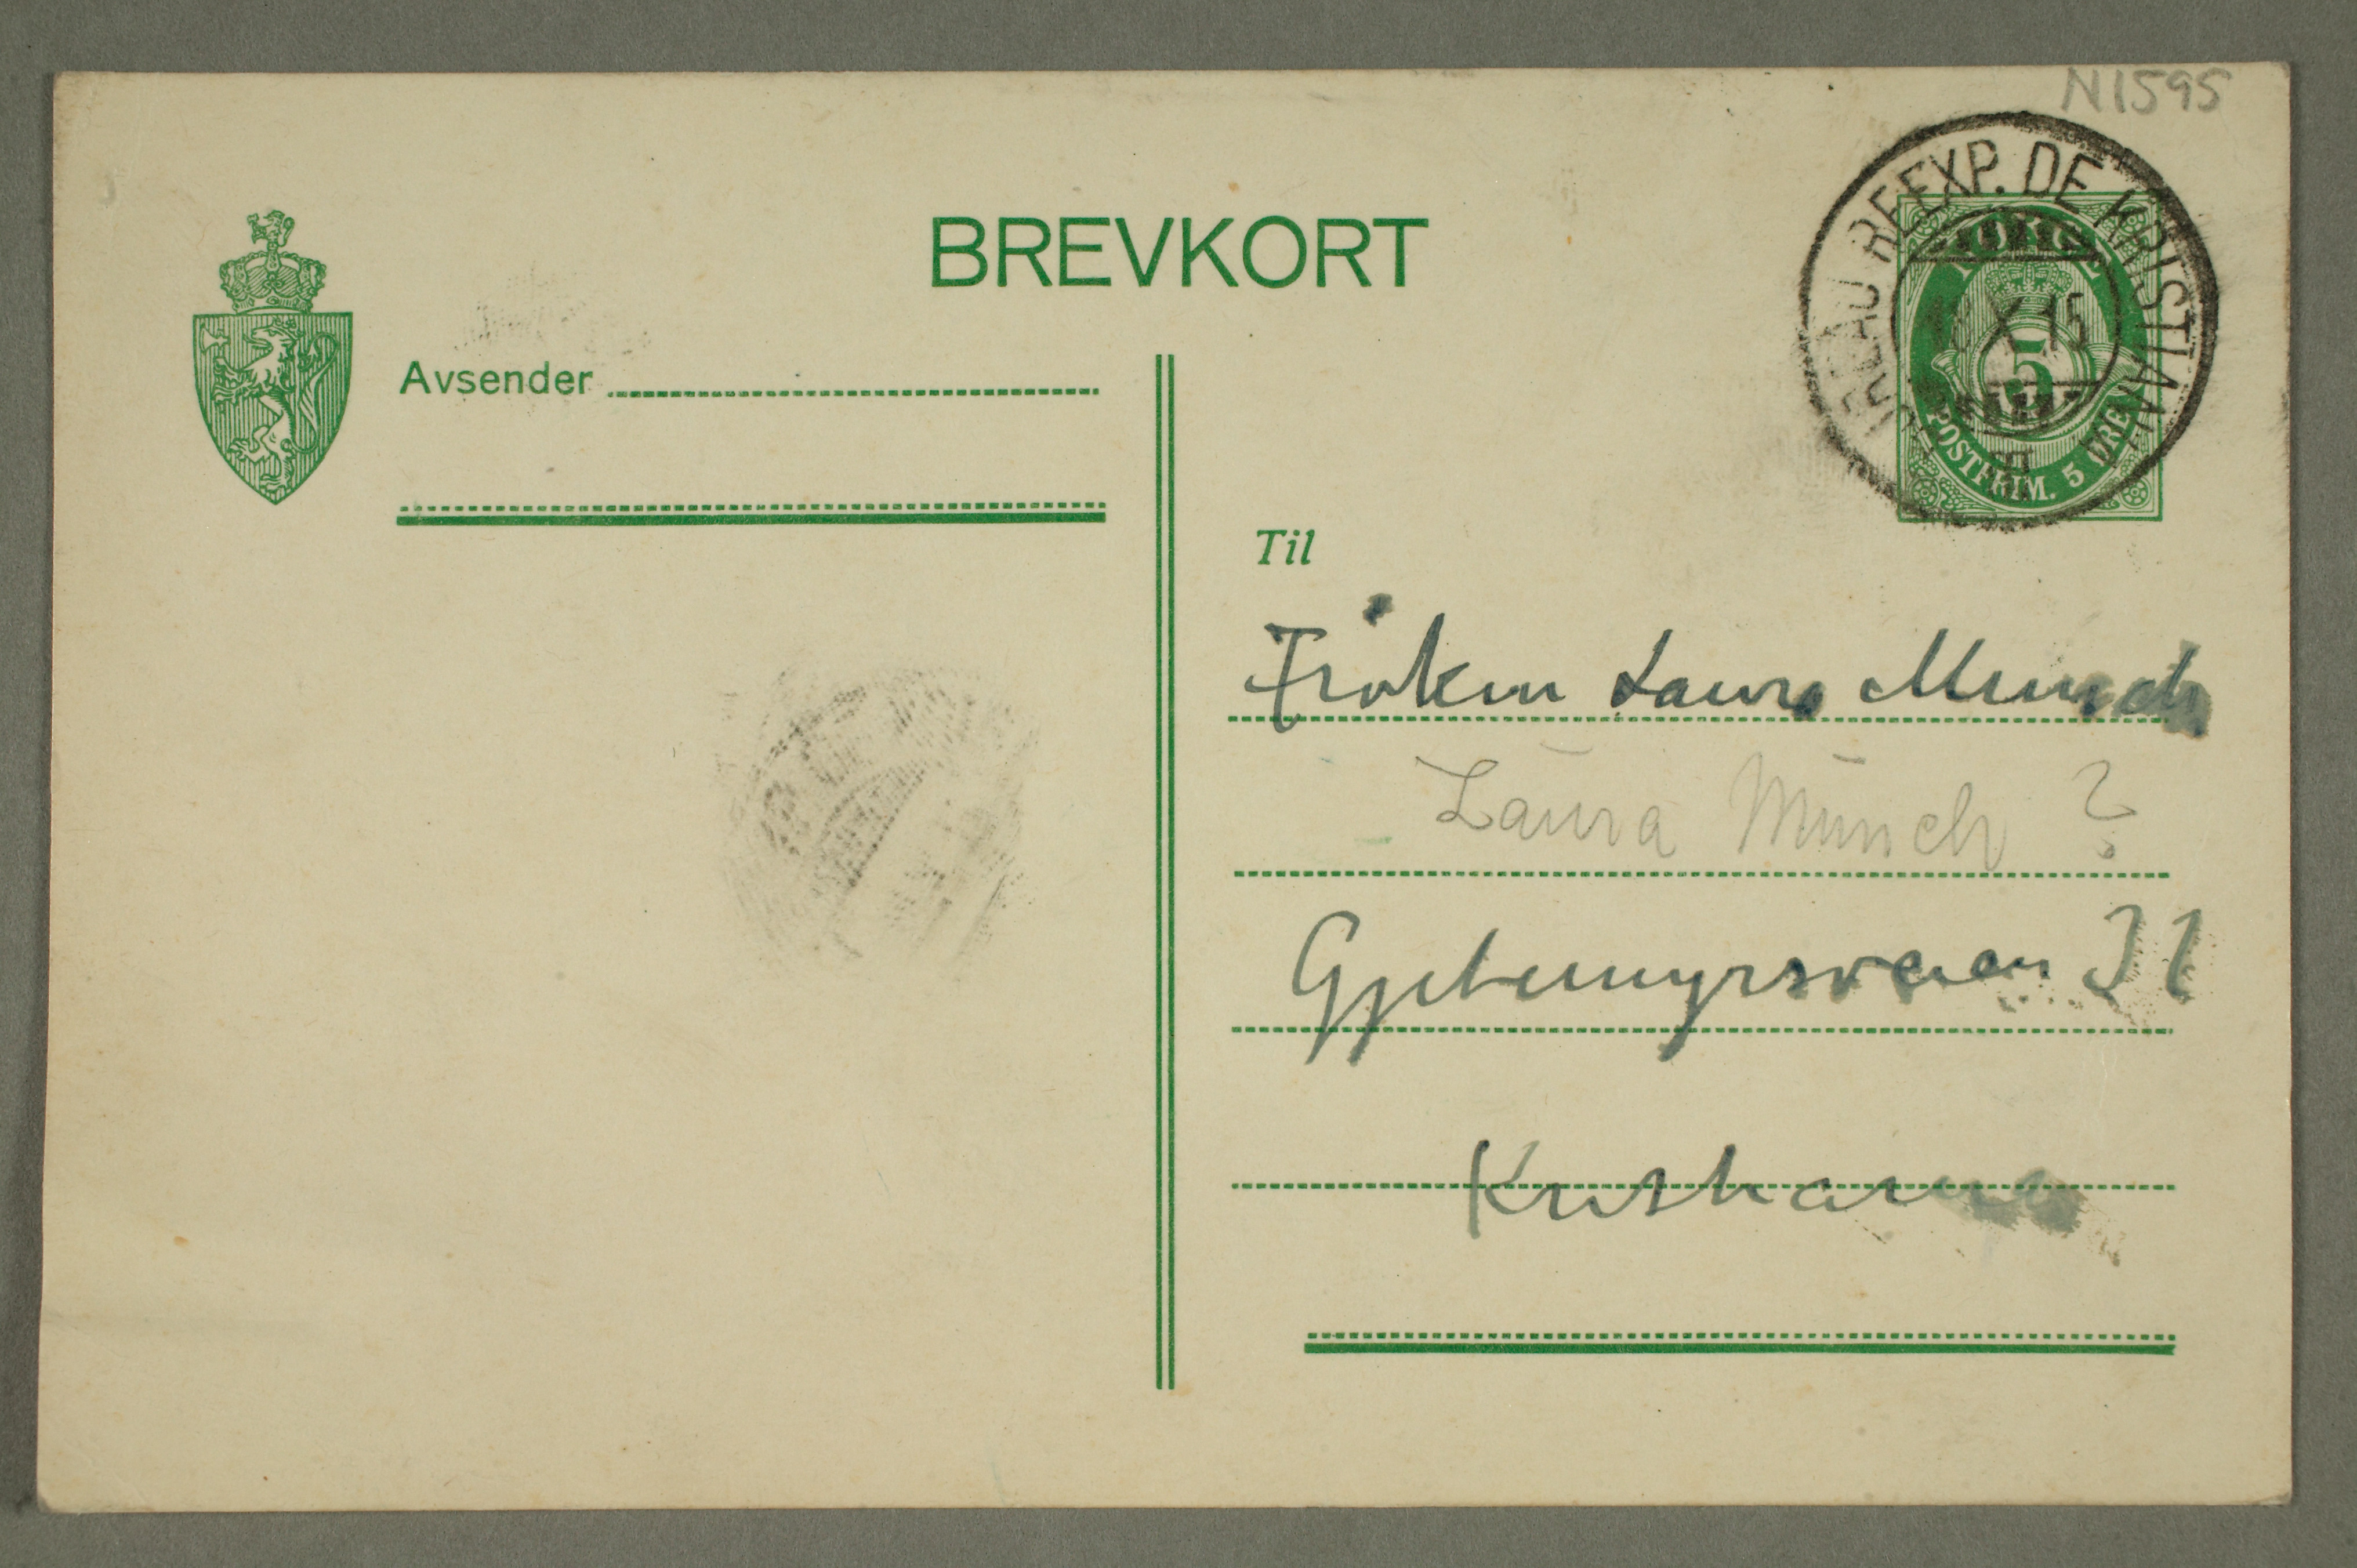 N1595
BREVKORT
BUREAU REEXP. DE KRISTIANIA
18 X 15
NORGE
5
POSTFRIM. 5 ØRE
Avsender
Til
Frøken Laura Munch
Laura Munch ?
Gjetemyrsveien
Kristiania